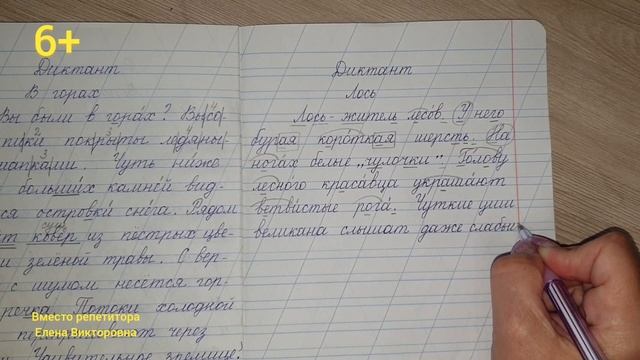 6+
Диктант
В горах
Вы были в горах? Высо-
покрыты ледяны-
шапками. Чуть ниже
больших камней вид-
ся островки снега. Рядом
ковёр из пёстрых цве-
и зелёной травы. С вер-
с шумом несётся гор-
речка. Потоки холодной
через
Удивительное зрелище!
Диктант
Лось
Лось - житель лесов. У него
бурая короткая шерсть. На
ногах белые „чулочки". Голову
лесного красавца украшают
ветвистые рога. Чуткие уши
великана слышат даже слабы
Вместо репетитора
Елена Викторовна